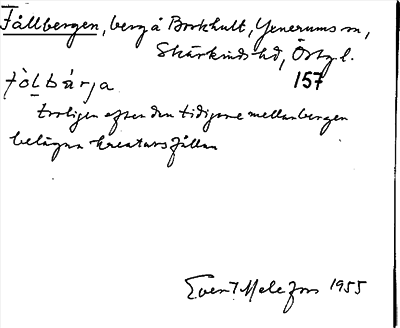 Fållbergen, berg å Borkhult, Yxnerums sn,
Skärkinds hd, Östg l.
fòlbárja 157
troligen efter den tidigare mellan bergen
belägna kreatursfållan
Evert Melefors 1955